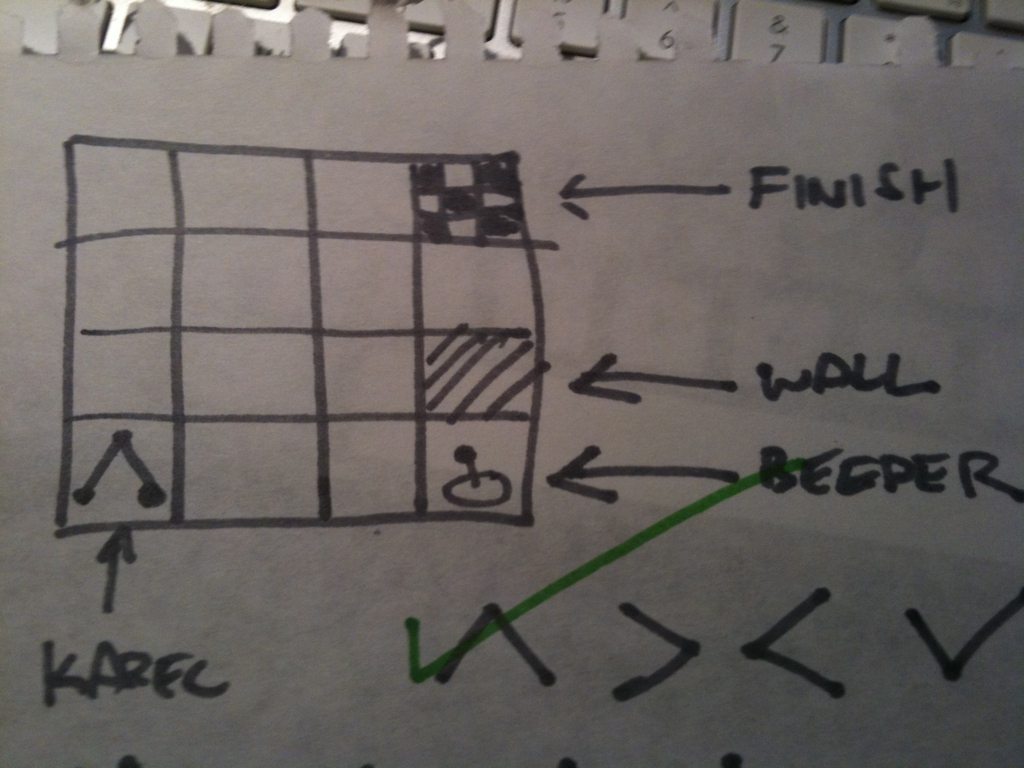 6
&
7
FINISH
WALL
BEEPER
KAREL